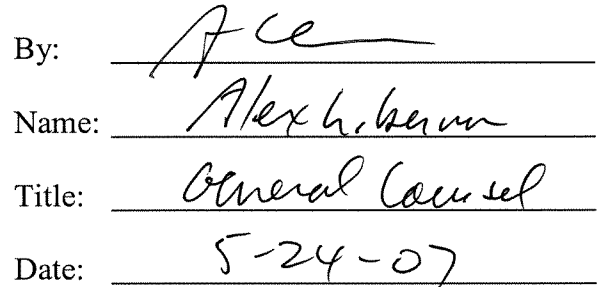 By:
Name: Alex Liberman
Title: General Counsel
Date: 5-24-07